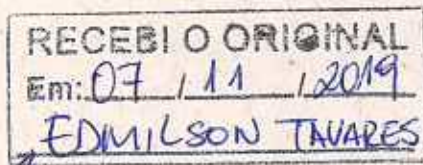 RECEBI O ORIGINAL
Em: 07 / 11 / 2019
EDMILSON TAVARES